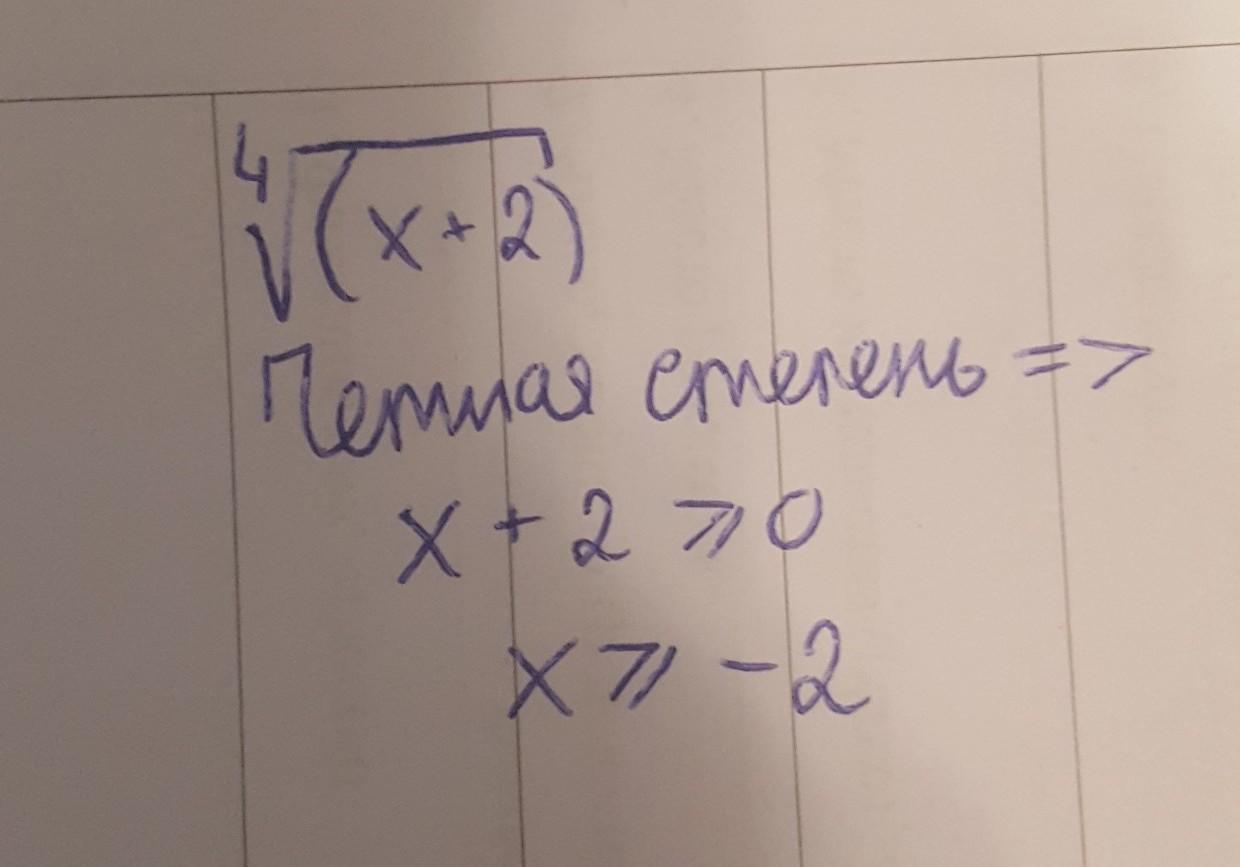 ⁴√(x+2)
Четная степень =>
x + 2 ⩾ 0
x ⩾ -2